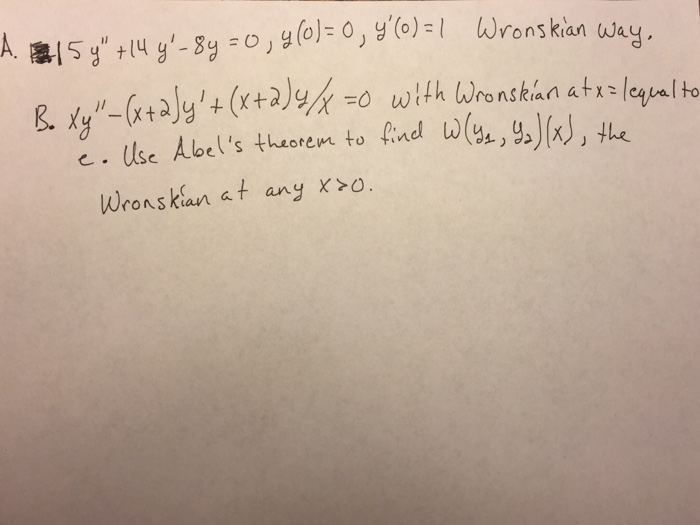 A. 15y" +14 y' - 8y = 0, y(0) = 0, y'(0) = 1 Wronskian Way.
B. xy" - (x+2)y' + (x+2)y/x = 0 with Wronskian at x = 1 equal to
e. Use Abel's theorem to find W(y₁, y₂)(x), the
Wronskian at any x>0.